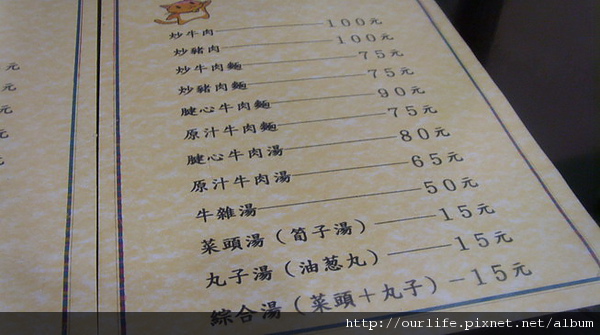 炒牛肉 100元
炒豬肉 100元
炒牛肉麵 75元
炒豬肉麵 75元
腱心牛肉麵 90元
原汁牛肉麵 75元
腱心牛肉湯 80元
原汁牛肉湯 65元
牛雜湯 50元
菜頭湯（筍子湯） 15元
丸子湯（油葱丸） 15元
綜合湯（菜頭＋丸子）－15元
元
元
元
http://ourlife.pixnet.net/album